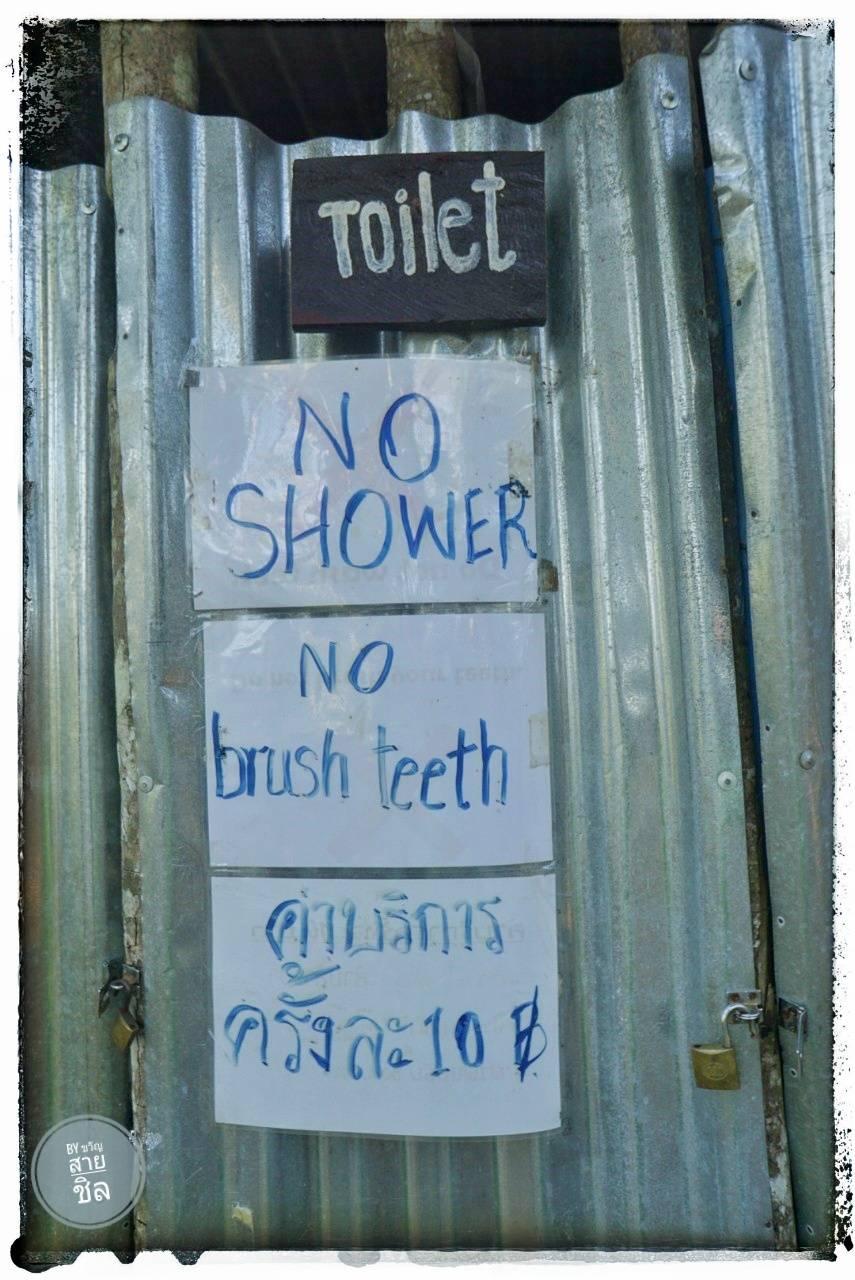 Toilet
NO
SHOWER
NO
brush teeth
ค่าบริการ
ครั้งละ 10 ฿
BY ขวัญ
สาย
ชิล